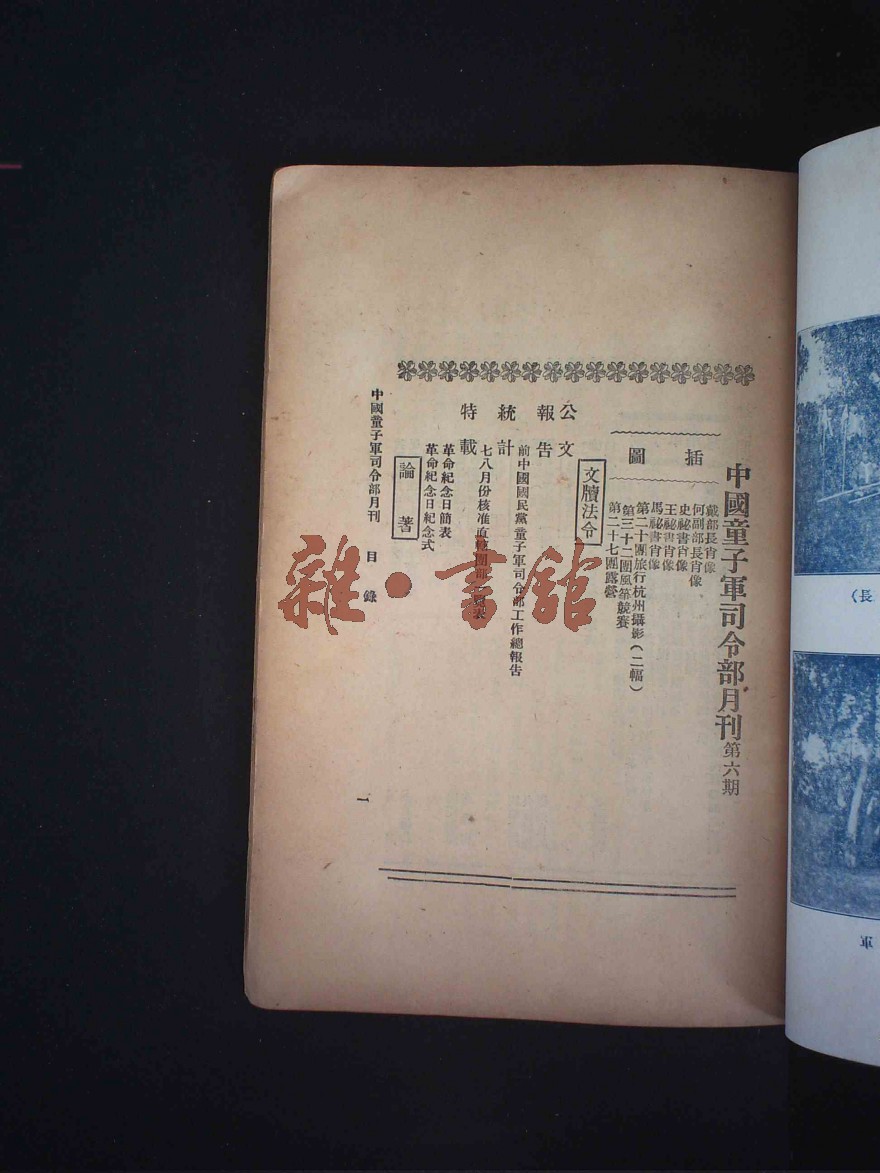 中國童子軍司令部月刊第六期
插圖
戴部長肖像
何副部長肖像
史祕書肖像
王祕書肖像
馬祕書肖像
第二十團旅行杭州攝影(二幅)
第三十二團風箏競賽
第二十七團露營
文牘法令
公文
報告
前中國國民黨童子軍司令部工作總報告
統計
七八月份核准
表
特載
革命紀念日簡表
革命紀念日紀念式
論著
中國童子軍司令部月刊 目錄
一
雜·書館
長
軍